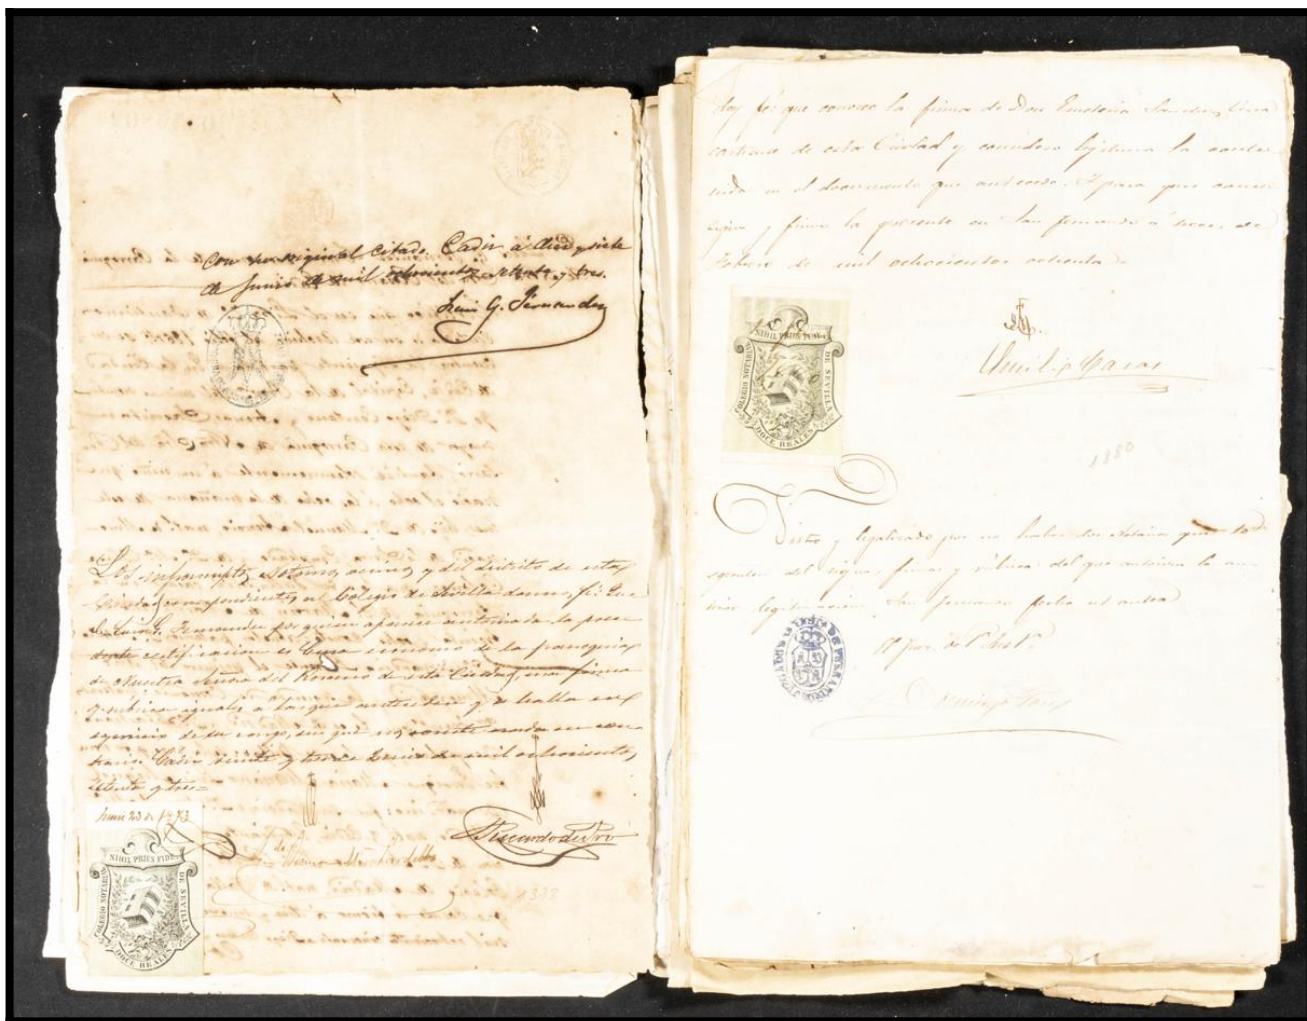 con su original citado. Cadiz á diez y siete
de Junio de mil ochocientos setenta y tres.
Luis G. Fernandez
Los infrascriptos Notarios, vecinos y del distrito de esta
Ciudad correspondientes al Colegio de Sevilla damos fé: Que
D. Luis G. Fernandez por quien aparece autorizada la prece
dente certificacion es Cura economo de la parroquia
de Nuestra Señora del Rosario de esta Ciudad, usa firma
y rubrica iguales a las que anteceden y se halla en
egercicio de su cargo, sin que nos conste nada en con
trario. Cádiz veinte y tres de Junio de mil ochocientos
setenta y tres=
Junio 23 de 1873
NIHIL PRIUS FIDE
COLEGIO NOTARIAL DE SEVILLA
DOCE REALES
Ricardo de Pro
Doy fé: que conozco la firma de Don Emeterio Sanchez, Cura
castrense de esta Ciudad y considero legitima la conte
nida en el documento que antecede. Y para que conste
signo y firmo la presente en San Fernando á doce de
Febrero de mil ochocientos ochenta.
NIHIL PRIUS FIDE
COLEGIO NOTARIAL DE SEVILLA
DOCE REALES
Emilio
1880
Visto y legalizado por no haber dos Notarios que lo
egecuten del signo, firma y rúbrica del que autoriza la an
terior legitimacion. San Fernando fecha ut antea
Domingo